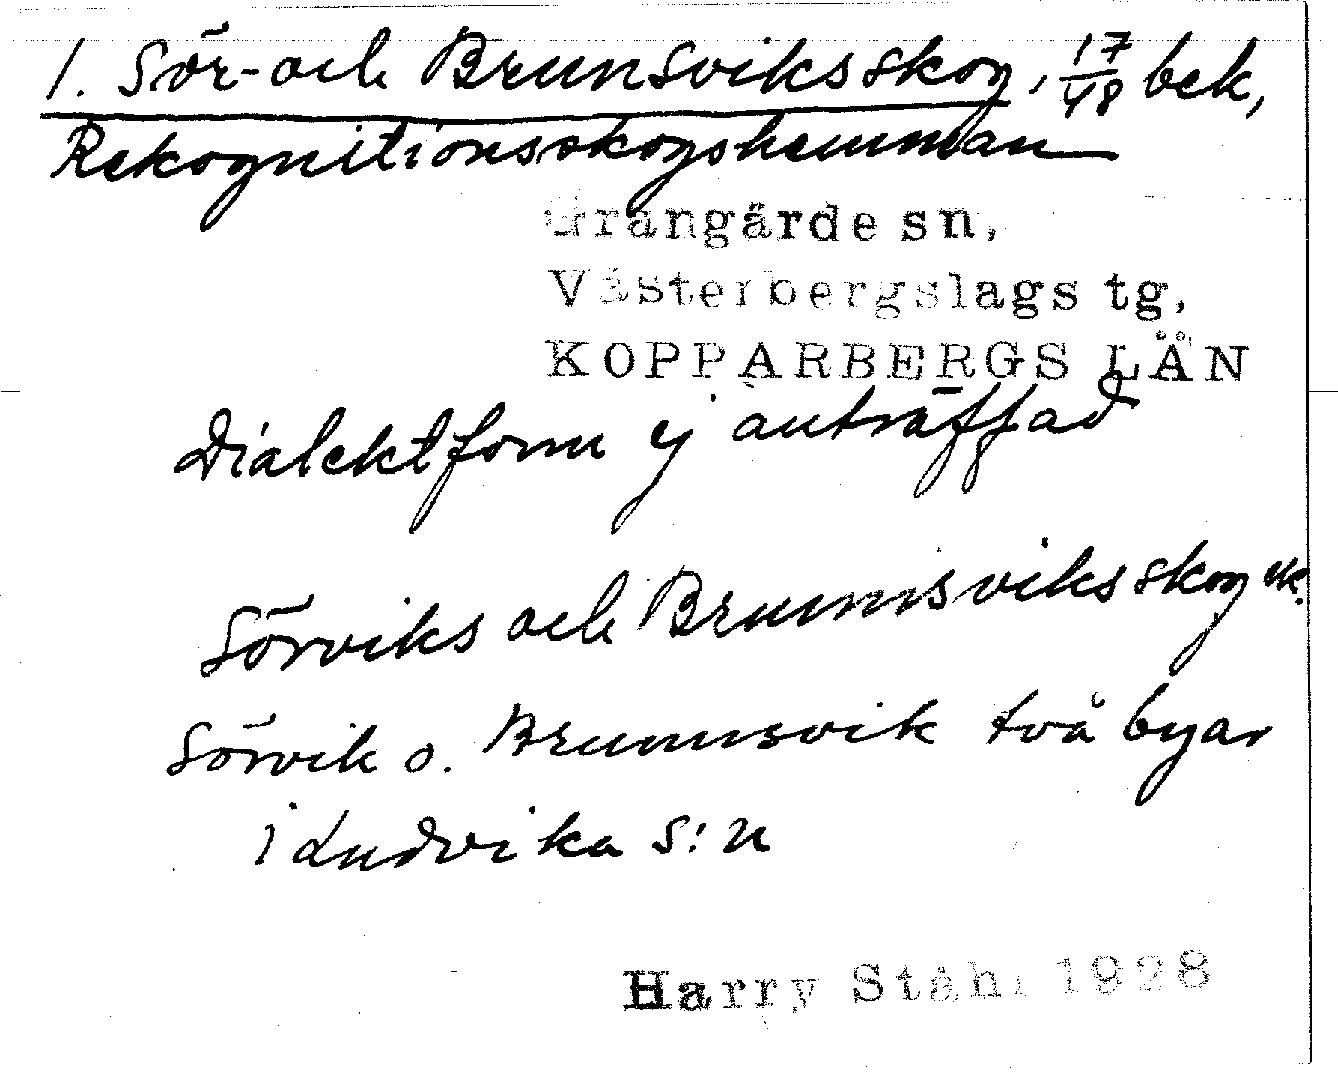 1. Sör- och Brunsviksskog, 17/48 bek,
Rekognitionsskogshemman
Grangärde sn,
Västerbergslags tg,
KOPPARBERGS LÄN
Dialektform ej anträffad
Sörviks och Brunnsviksskog
Sörvik o. Brunnsvik två byar
i Ludvika s:n
Harry Ståhl 1928